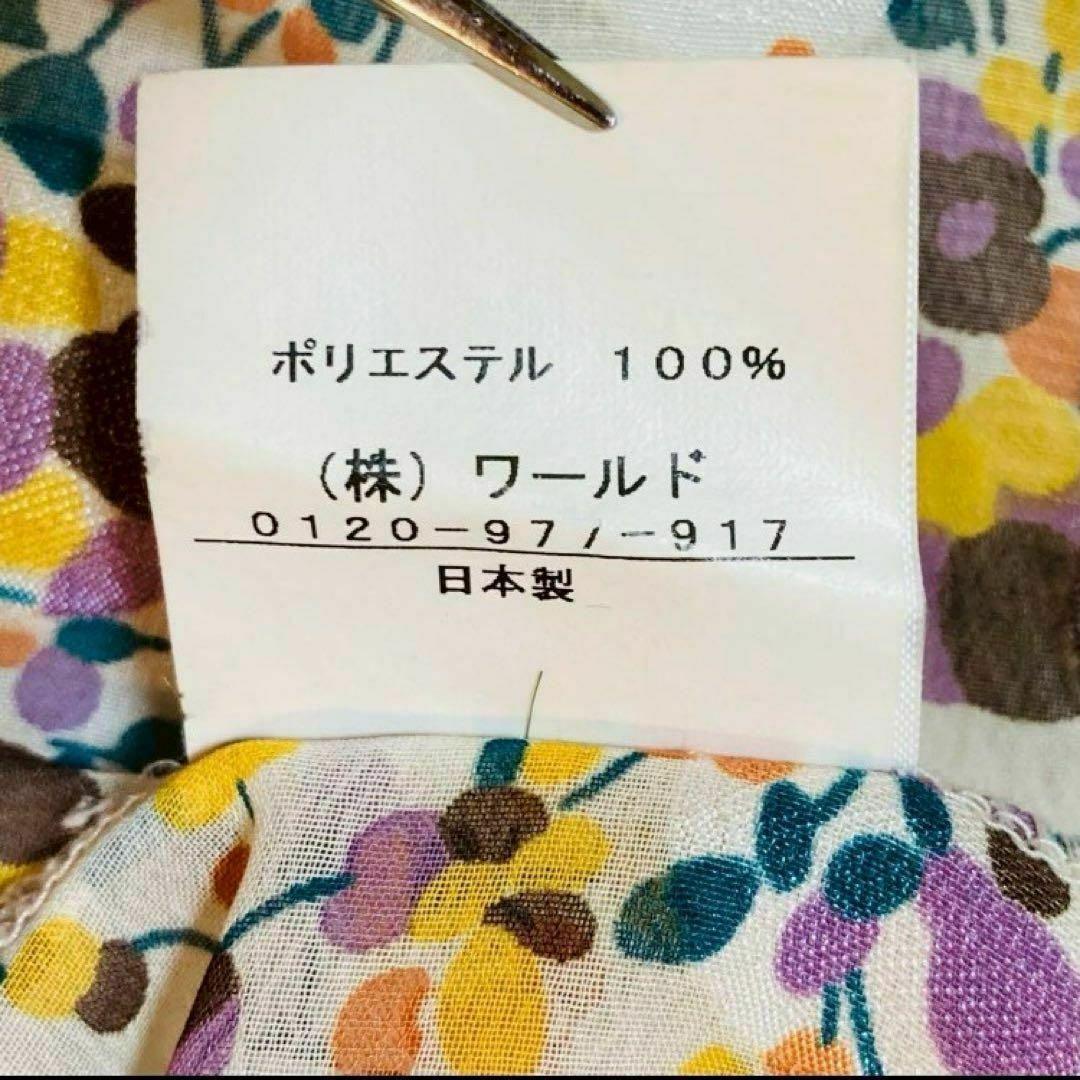 ポリエステル　１００％
（株）ワールド
０１２０－９７７－９１７
日本製